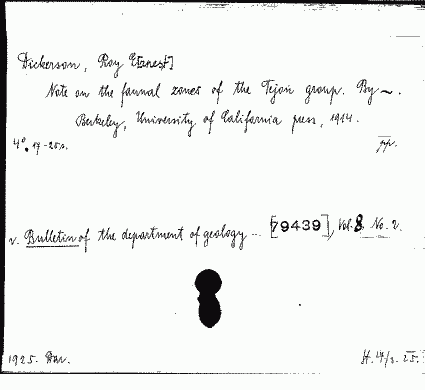 Dickerson, Roy E[rnest]
Note on the faunal zones of the Tejon group. By ~.
Berkeley, University of California press, 1914.
4°. 17-25 s. pp.
v. Bulletin of the department of geology ... [79439], Vol. 8, No. 2.
1925. H. 4/3. 25.